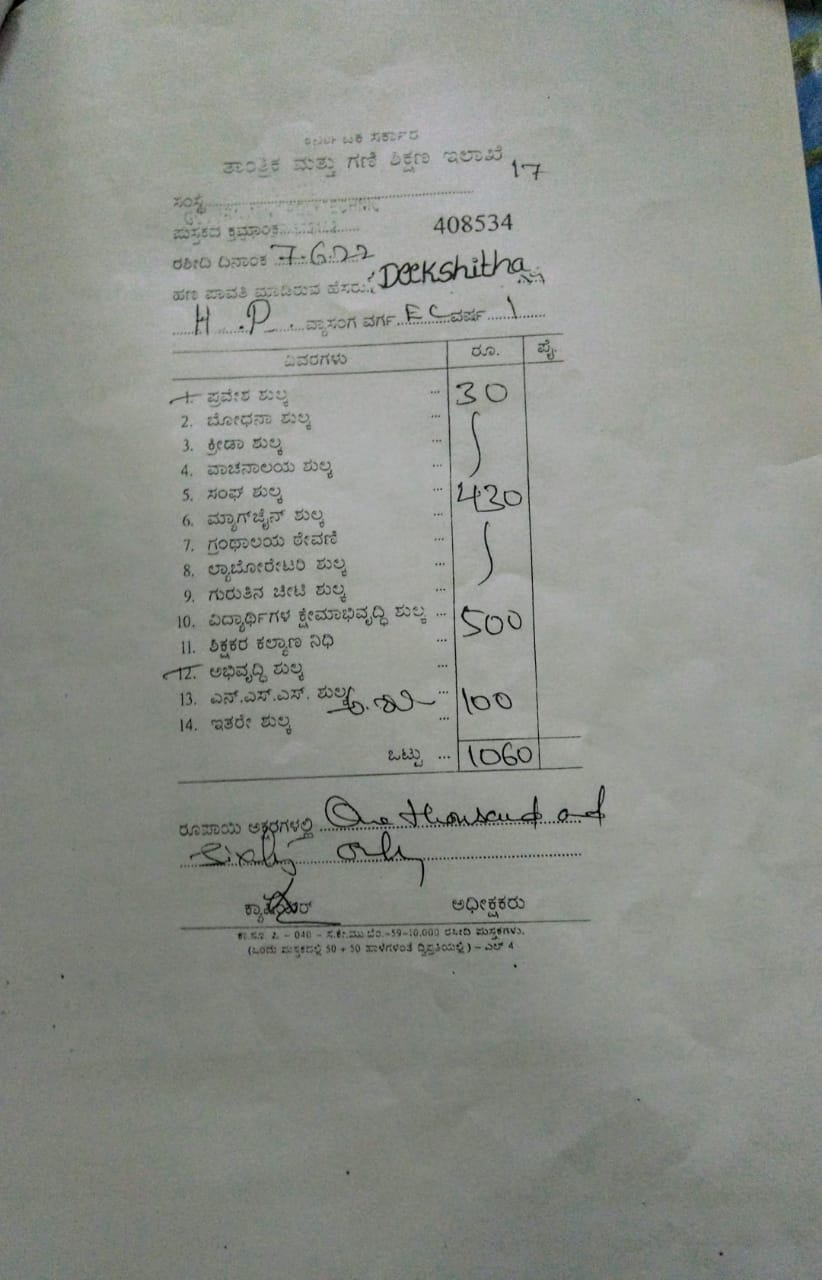 ಕರ್ನಾಟಕ ಸರ್ಕಾರ
ತಾಂತ್ರಿಕ ಮತ್ತು ಗಣಿ ಶಿಕ್ಷಣ ಇಲಾಖೆ 17
ಸಂಸ್ಥೆ
ಪುಸ್ತಕದ ಕ್ರಮಾಂಕ 408534
ರಶೀದಿ ದಿನಾಂಕ 7.6.22
ಹಣ ಪಾವತಿ ಮಾಡಿರುವ ಹೆಸರು Deekshitha
H.P. ವ್ಯಾಸಂಗ ವರ್ಗ EC ವರ್ಷ 1
ವಿವರಗಳು ರೂ. ಪೈ.
1. ಪ್ರವೇಶ ಶುಲ್ಕ ... 30
2. ಬೋಧನಾ ಶುಲ್ಕ ...
3. ಕ್ರೀಡಾ ಶುಲ್ಕ ...
4. ವಾಚನಾಲಯ ಶುಲ್ಕ ...
5. ಸಂಘ ಶುಲ್ಕ ... 430
6. ಮ್ಯಾಗ್‌ಜೈನ್ ಶುಲ್ಕ ...
7. ಗ್ರಂಥಾಲಯ ಠೇವಣಿ ...
8. ಲ್ಯಾಬೋರೇಟರಿ ಶುಲ್ಕ ...
9. ಗುರುತಿನ ಚೀಟಿ ಶುಲ್ಕ ...
10. ವಿದ್ಯಾರ್ಥಿಗಳ ಕ್ಷೇಮಾಭಿವೃದ್ಧಿ ಶುಲ್ಕ ... 500
11. ಶಿಕ್ಷಕರ ಕಲ್ಯಾಣ ನಿಧಿ ...
12. ಅಭಿವೃದ್ಧಿ ಶುಲ್ಕ ...
13. ಎನ್.ಎಸ್.ಎಸ್. ಶುಲ್ಕ ... 100
14. ಇತರೇ ಶುಲ್ಕ ...
ಒಟ್ಟು ... 1060
ರೂಪಾಯಿ ಅಕ್ಷರಗಳಲ್ಲಿ One thousand and
Sixty only
ಕ್ಯಾಷಿಯರ್ ಅಧೀಕ್ಷಕರು
ಕಾ.ಸೂ. 2. – 040 – ಸ.ಕೇ.ಮು.ಬೆಂ.–59–10,000 ರಶೀದಿ ಪುಸ್ತಕಗಳು.
(ಒಂದು ಪುಸ್ತಕದಲ್ಲಿ 50 + 50 ಹಾಳೆಗಳಂತೆ ದ್ವಿಪ್ರತಿಯಲ್ಲಿ) – ಎಲ್ 4